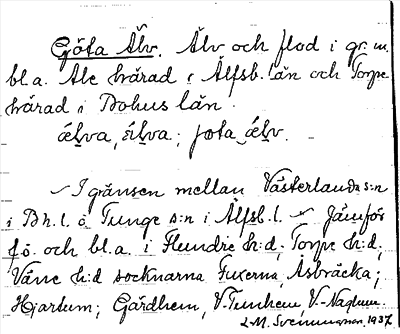 Göta Älv. Älv och flod i gr. m.
bl.a. Ale härad i Älfsb. län och Torpe
härad i Bohus län.
I gränsen mellan Västerlanda s:n
i Bh.l. o Tunge s:n i Älfsb.l. Jämför
fö. och bl.a. i Flundre h:d; Torpe h:d;
Väne h:d socknarna Fuxerna, Åsbräcka;
Hjartum; Gärdhem, V-Tunhem, V.-Naglum.
L.M. Svenungsson, 1937